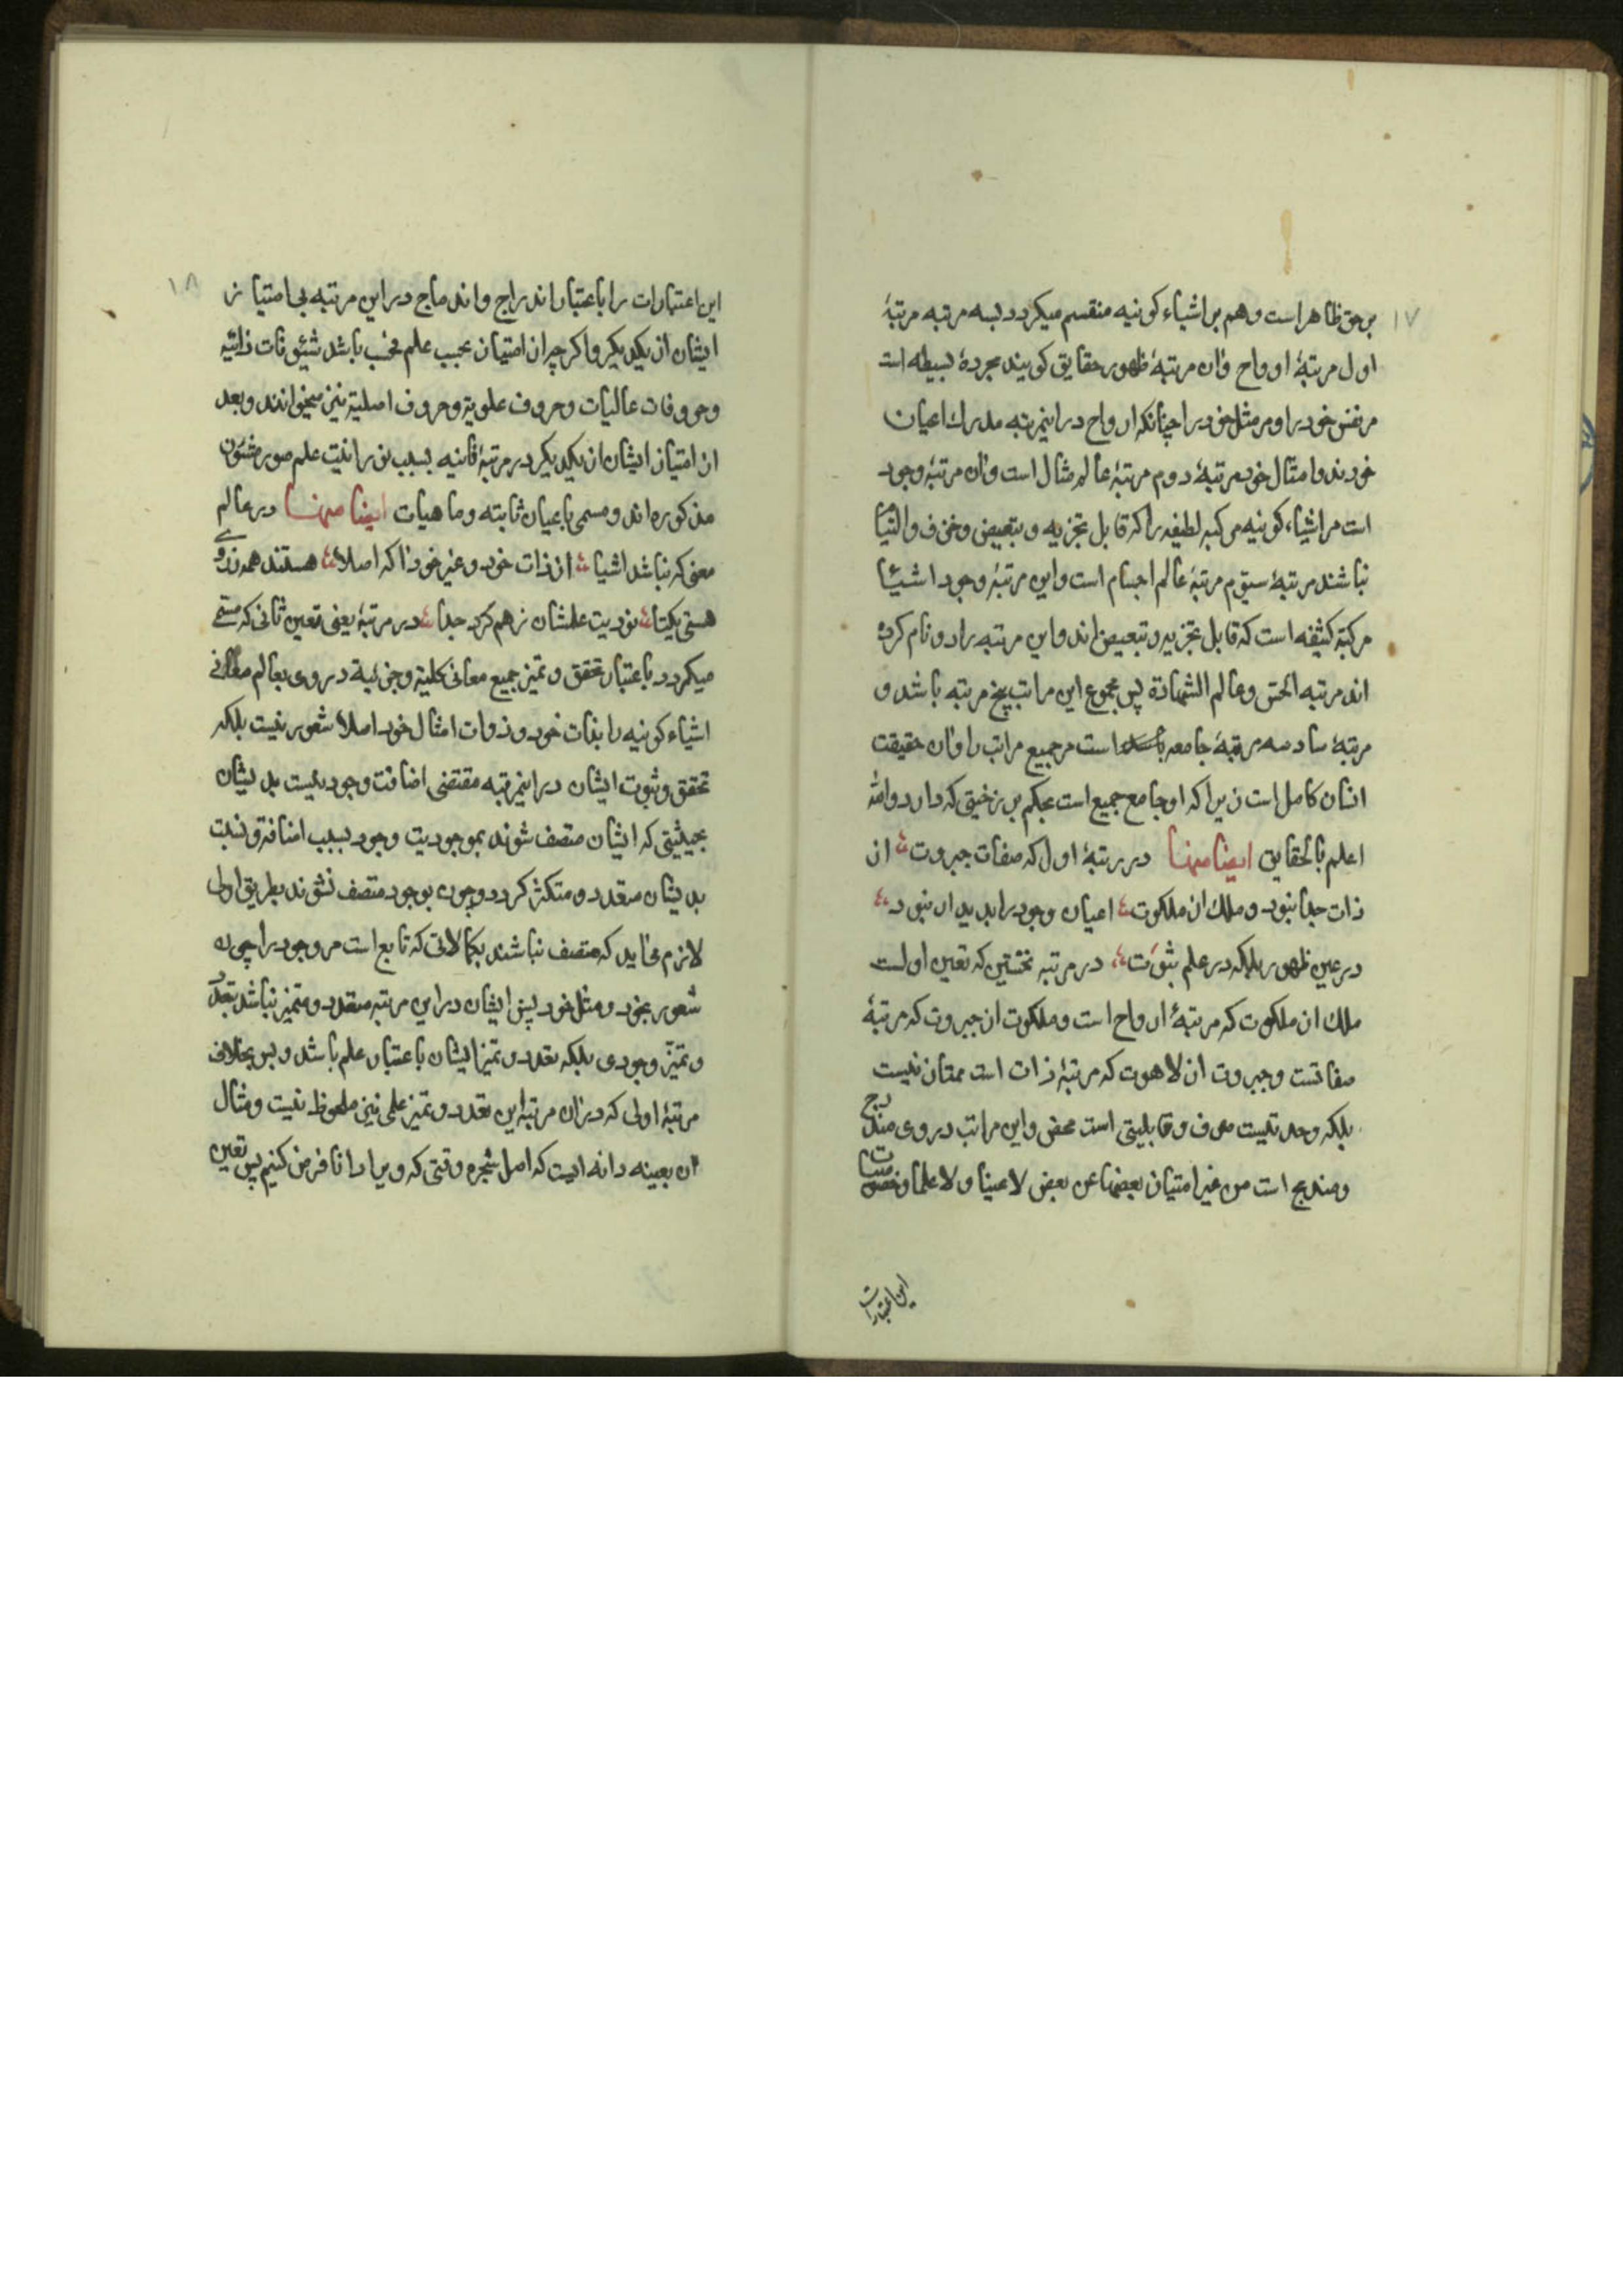 ۱۷
بر حق ظاهر است و هم بر اشیاء کونیه منقسم میگردد بسه مرتبه مرتبۀ
اول مرتبۀ ارواح وان مرتبۀ ظهور حقایق کونیه مجردۀ بسیطه است
مر نفس خود را و مر مثل خود را چنانکه ارواح در اینمرتبه مدرک اعیان
خودند و امثال خود مرتبۀ دوم مرتبۀ عالم مثال است وان مرتبۀ وجود
است مر اشیاء کونیه مرکبه لطیفه را که قابل تجزیه و تبعیض و خرق والتیا
نباشند مرتبۀ سیوم مرتبۀ عالم اجسام است واین مرتبۀ وجود اشیا
مرکبۀ کثیفه است که قابل تجزیه و تبعیض اند واین مرتبه را دو نام کرده
اند مرتبه الحس وعالم الشهادة پس مجموع این مراتب پنج مرتبه باشد و
مرتبۀ سادسه مرتبۀ جامعه است مر جمیع مراتب را وان حقیقت
انسان کامل است زیرا که او جامع جمیع است بحکم برزخیتی که دارد والله
اعلم بالحقایق ایضا منها در رتبۀ اول که صفات جبروت از
ذات جدا نبود و ملک از ملکوت اعیان وجود را پدیدار نبود
در عین ظهور بلکه در علم ثبوت در مرتبه نخستین که تعین اولست
ملک از ملکوت که مرتبۀ ارواح است وملکوت از جبروت که مرتبۀ
صفاتست وجبروت از لاهوت که مرتبۀ ذات است ممتاز نیست
بلکه وحدتیست صرف وقابلیتی است محض واین مراتب دروی مندرج
ومندمج است من غیر امتیاز بعضها عن بعض لا عینا ولا علما وخصوصیات
این اعتبارات
۱۸
این اعتبارات را باعتبار اندراج واندماج در این مرتبه بی امتیاز
ایشان از یکدیگر واگرچه ان امتیاز بحسب علم فحسب باشد شیؤنات ذاتیه
وحروفات عالیات وحروف علویة وحروف اصلیة نیز میخوانند وبعد
از امتیاز ایشان از یکدیگر در مرتبۀ ثانیه بسبب نورانیت علم صور شئون
مذکوره اند ومسمی باعیان ثابته وماهیات ایضا منها در عالم
معنی که نباشد اشیا از ذات خود وغیر خود اگه اصلا هستند همه ز روی
هستی یکتا نوریت علمشان ز هم کرد جدا در مرتبۀ یعنی تعین ثانی که مسمی
میگردد باعتبار تحقق وتمیز جمیع معانی کلیة وجزئیة دروی بعالم معانی
اشیاء کونیه را بذات خود وذوات امثال خود اصلا شعور نیست بلکه
تحقق وثبوت ایشان در اینمرتبه مقتضی اضافت وجود نیست بدیشان
بحیثیتی که ایشان متصف شوند بموجودیت وجود بسبب اضافة ونسبت
بدیشان متعدد ومتکثر گردد وچون بوجود متصف نشوند بطریق اولی
لازم می‌آید که متصف نباشند بکمالاتی که تابع است مر وجود را چون
شعور بخود ومثل خود پس ایشان در این مرتبه متعدد ومتمیز نباشد بتعدد
وتمیز وجودی بلکه تعدد وتمیز ایشان باعتبار علم باشد وبس بخلاف
مرتبۀ اولی که در ان مرتبه این تعدد وتمیز علمی نیز ملحوظ نیست ومثال
ان بعینه دانه ایست که اصل شجره وقتی که ویرا دانا فرض کنیم پس تعین